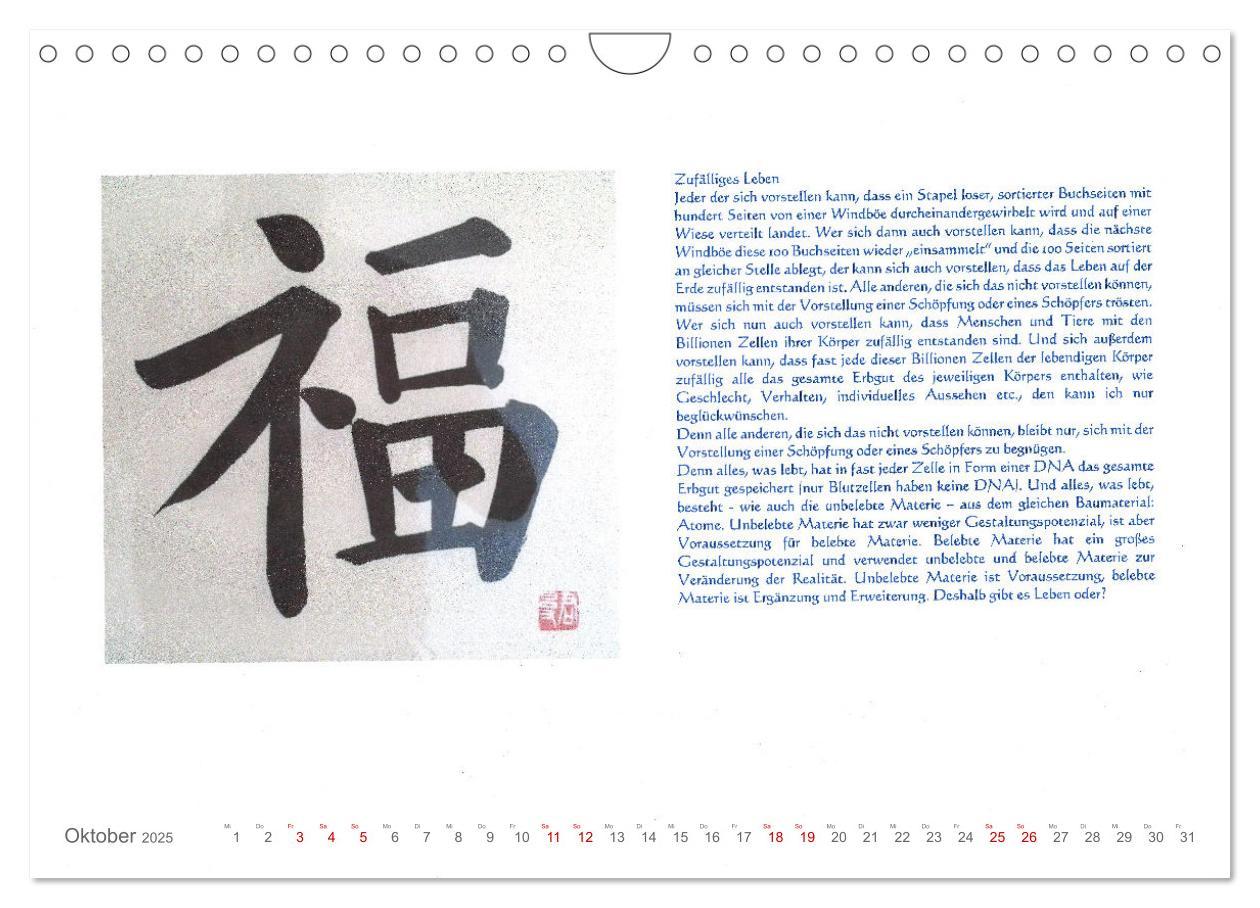 福
Zufälliges Leben
Jeder der sich vorstellen kann, dass ein Stapel loser, sortierter Buchseiten mit
hundert Seiten von einer Windböe durcheinandergewirbelt wird und auf einer
Wiese verteilt landet. Wer sich dann auch vorstellen kann, dass die nächste
Windböe diese 100 Buchseiten wieder „einsammelt" und die 100 Seiten sortiert
an gleicher Stelle ablegt, der kann sich auch vorstellen, dass das Leben auf der
Erde zufällig entstanden ist. Alle anderen, die sich das nicht vorstellen können,
müssen sich mit der Vorstellung einer Schöpfung oder eines Schöpfers trösten.
Wer sich nun auch vorstellen kann, dass Menschen und Tiere mit den
Billionen Zellen ihrer Körper zufällig entstanden sind. Und sich außerdem
vorstellen kann, dass fast jede dieser Billionen Zellen der lebendigen Körper
zufällig alle das gesamte Erbgut des jeweiligen Körpers enthalten, wie
Geschlecht, Verhalten, individuelles Aussehen etc., den kann ich nur
beglückwünschen.
Denn alle anderen, die sich das nicht vorstellen können, bleibt nur, sich mit der
Vorstellung einer Schöpfung oder eines Schöpfers zu begnügen.
Denn alles, was lebt, hat in fast jeder Zelle in Form einer DNA das gesamte
Erbgut gespeichert (nur Blutzellen haben keine DNA). Und alles, was lebt,
besteht - wie auch die unbelebte Materie – aus dem gleichen Baumaterial:
Atome. Unbelebte Materie hat zwar weniger Gestaltungspotenzial, ist aber
Voraussetzung für belebte Materie. Belebte Materie hat ein großes
Gestaltungspotenzial und verwendet unbelebte und belebte Materie zur
Veränderung der Realität. Unbelebte Materie ist Voraussetzung, belebte
Materie ist Ergänzung und Erweiterung. Deshalb gibt es Leben oder?
Mi Do Fr Sa So Mo Di Mi Do Fr Sa So Mo Di Mi Do Fr Sa So Mo Di Mi Do Fr Sa So Mo Di Mi Do Fr
Oktober 2025 1 2 3 4 5 6 7 8 9 10 11 12 13 14 15 16 17 18 19 20 21 22 23 24 25 26 27 28 29 30 31